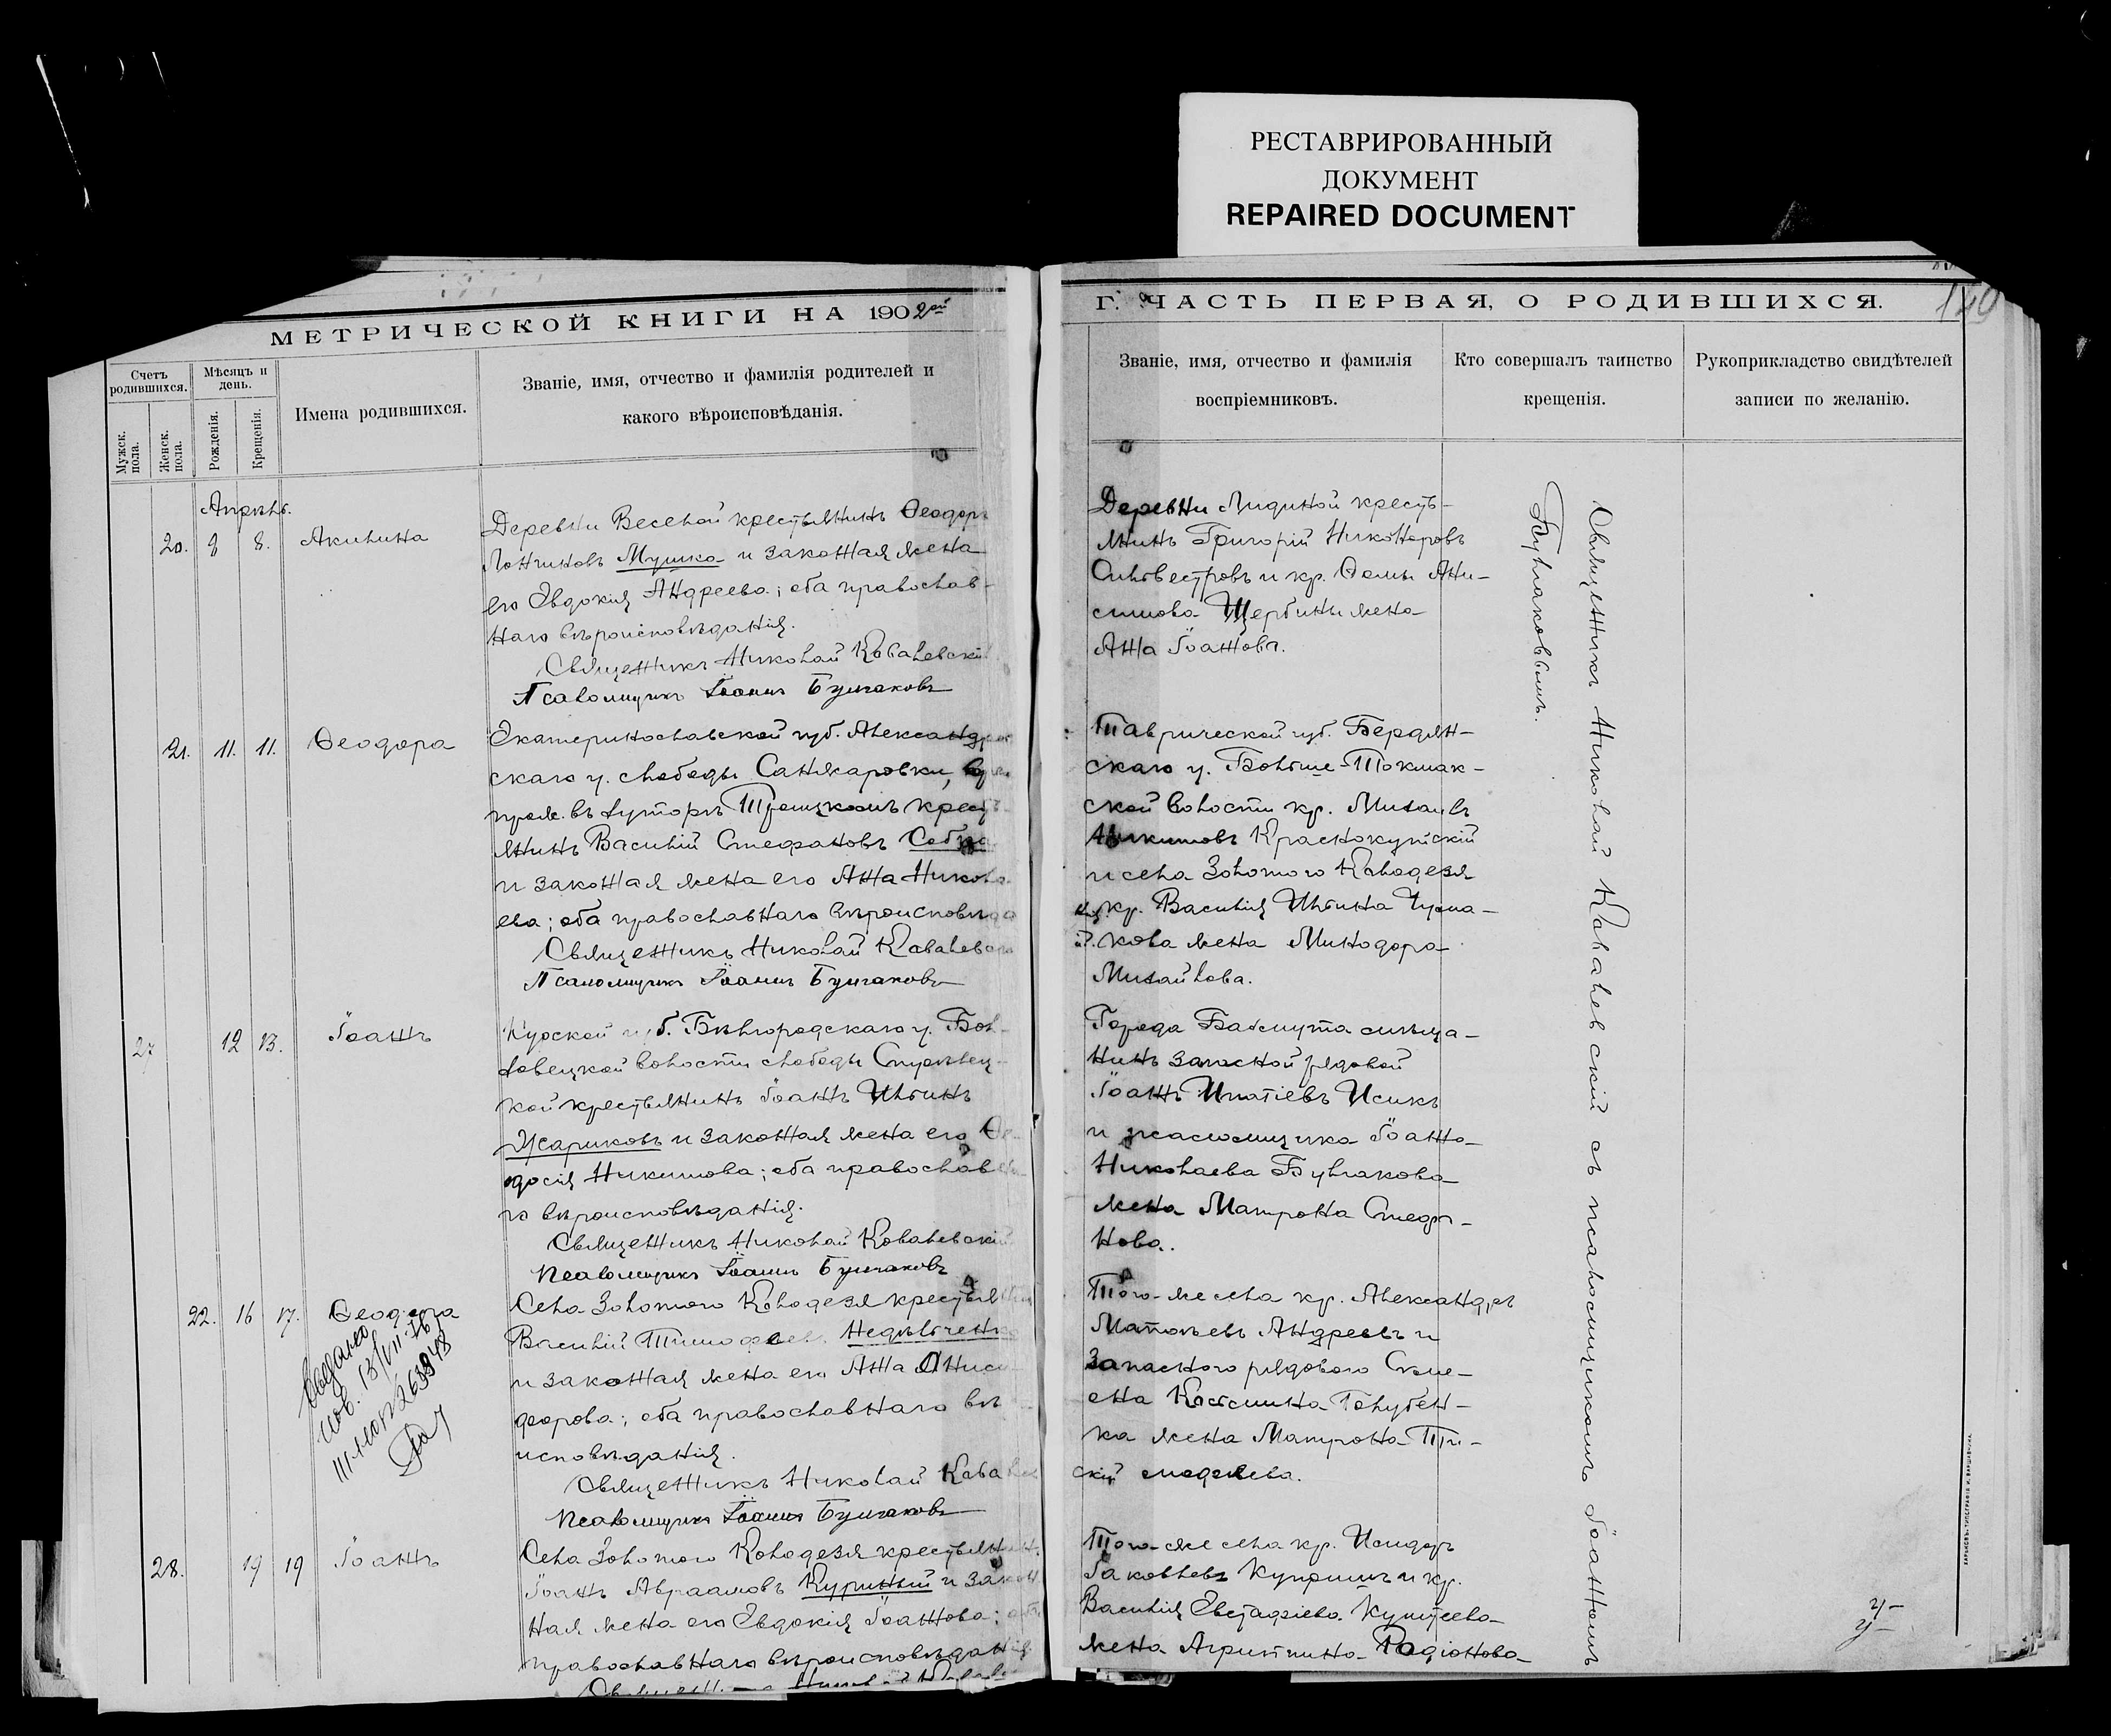 РЕСТАВРИРОВАННЫЙ
ДОКУМЕНТ
REPAIRED DOCUMENT
МЕТРИЧЕСКОЙ КНИГИ НА 1902ой
Г. ЧАСТЬ ПЕРВАЯ, О РОДИВШИХСЯ.
149
Счетъ родившихся.
Мужск. пола.
Женск. пола.
Мѣсяцъ и день.
Рожденія.
Крещенія.
Имена родившихся.
Званіе, имя, отчество и фамилія родителей и
какого вѣроисповѣданія.
Званіе, имя, отчество и фамилія
воспріемниковъ.
Кто совершалъ таинство
крещенія.
Рукоприкладство свидѣтелей
записи по желанію.
Апрѣль.
20. 8 8. Акилина
Деревни Веселой крестьянинъ Ѳеодоръ
Лонгиновъ Мушка и законная жена
его Евдокія Андреева; оба православ-
наго вѣроисповѣданія.
Священникъ Николай Ковалевскій
Псаломщикъ Іоаннъ Булгаковъ
Деревни Лидиной кресть-
янинъ Григорій Никоноровъ
Сильвестровъ и кр. Ѳомы Ани-
симова Щербины жена
Анна Іоаннова.
21. 11. 11. Ѳеодора
Екатеринославской губ. Александров
скаго у. слободы Санжаровки,
прож. въ хуторѣ Троицкомъ кресть-
янинъ Василій Стефановъ
и законная жена его Анна Никола
ева; оба православнаго вѣроисповѣда
Священникъ Николай Ковалевск
Псаломщикъ Іоаннъ Булгаковъ
Таврической губ. Бердян-
скаго у. Больше-Токмак-
ской волости кр. Михаилъ
Никитовъ Краснокутскій
и села Золотого Колодезя
кр. Василія Ильина Чума-
кова жена Минодора
Михайлова.
27 12 13. Іоаннъ
Курской губ. Бѣлгородскаго у. Бол-
ховецкой волости слободы Стрѣлец-
кой крестьянинъ Іоаннъ Ильинъ
Жариковъ и законная жена его Ѳе-
одосія Никитова; оба православна
го вѣроисповѣданія.
Священникъ Николай Ковалевскій
Псаломщикъ Іоаннъ Булгаковъ
Города Бахмута мѣща-
нинъ запасной рядовой
Іоаннъ Игнатіевъ Исикъ
и псаломщика Іоанна
Николаева Булгакова
жена Матрона Стефа-
нова.
22. 16 17. Ѳеодора
Села Золотого Колодезя крестьянин
Василій Тимофеевъ Недѣльченко
и законная жена его Анна
деорова; оба православнаго вѣ
исповѣданія.
Священникъ Николай Ковалев
скій
Псаломщикъ Іоаннъ Булгаковъ
Того-же села кр. Александръ
Матѳѣевъ Андреевъ и
запасного рядового Симе-
она Косьмина Голубен-
ка жена Матрона Ти-
моѳеева.
28. 19 19 Іоаннъ
Села Золотого Колодезя крестьянин.
Іоаннъ Авраамовъ Куриный и закон
ная жена его Евдокія Іоаннова; оба
православнаго вѣроисповѣданія.
Того-же села кр. Исидоръ
Іаковлевъ Купринъ и кр.
Василія Евстафіева
жена Агриппина Родіонова
Священникъ Николай Ковалевскій съ псаломщикомъ Іоанномъ
Булгаковымъ.
ХАРЬКОВЪ. ТИПОГРАФІЯ И. ВАРШАВЧИКА.